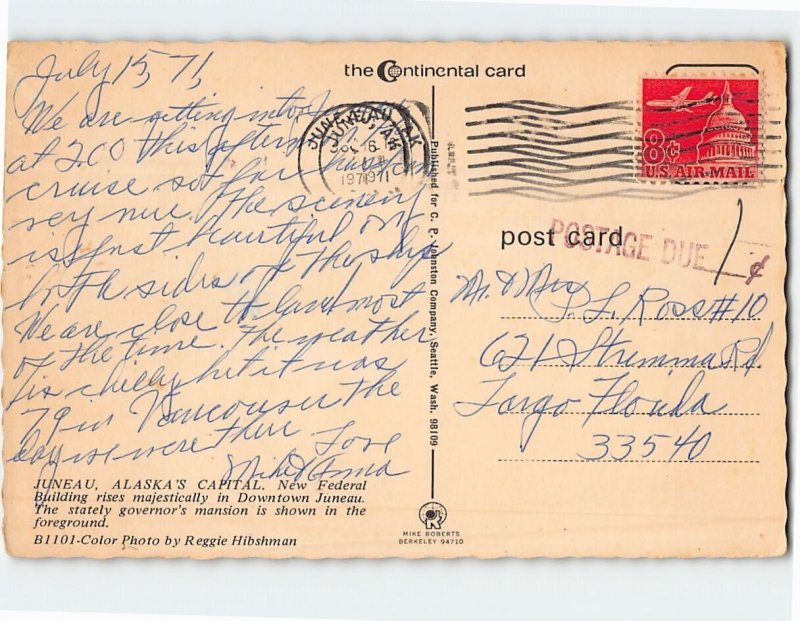 July 15, 71,
We are getting into
at 200 this afternoon
cruise so far has been
very nice. The scenery
is just beautiful on
both sides of the ship
We are close to land most
of the time. The weather
is chilly but it was
79 in Vancouver the
day we were there Love
Mike & Anna
JUNEAU, ALASKA'S CAPITAL. New Federal
Building rises majestically in Downtown Juneau.
The stately governor's mansion is shown in the
foreground.
B1101-Color Photo by Reggie Hibshman
the Continental card
JUNEAU, AK
1971
Published for C. P. Johnston Company, Seattle, Wash. 98109
MIKE ROBERTS
BERKELEY 94710
8¢
U.S. AIR MAIL
post card
POSTAGE DUE 1 ¢
Mr. & Mrs P. L. Ross #10
621 Rd.
Largo Florida
33540